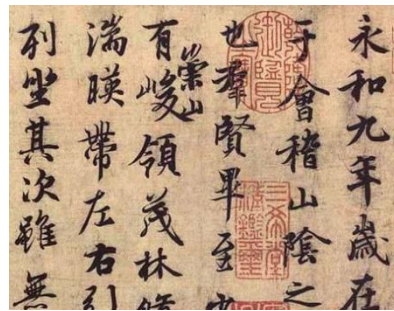 永和九年歲在
于會稽山陰之
也羣賢畢至少
有崇山峻領茂林脩
湍暎帶左右引
列坐其次雖無
三希堂
精鑑璽